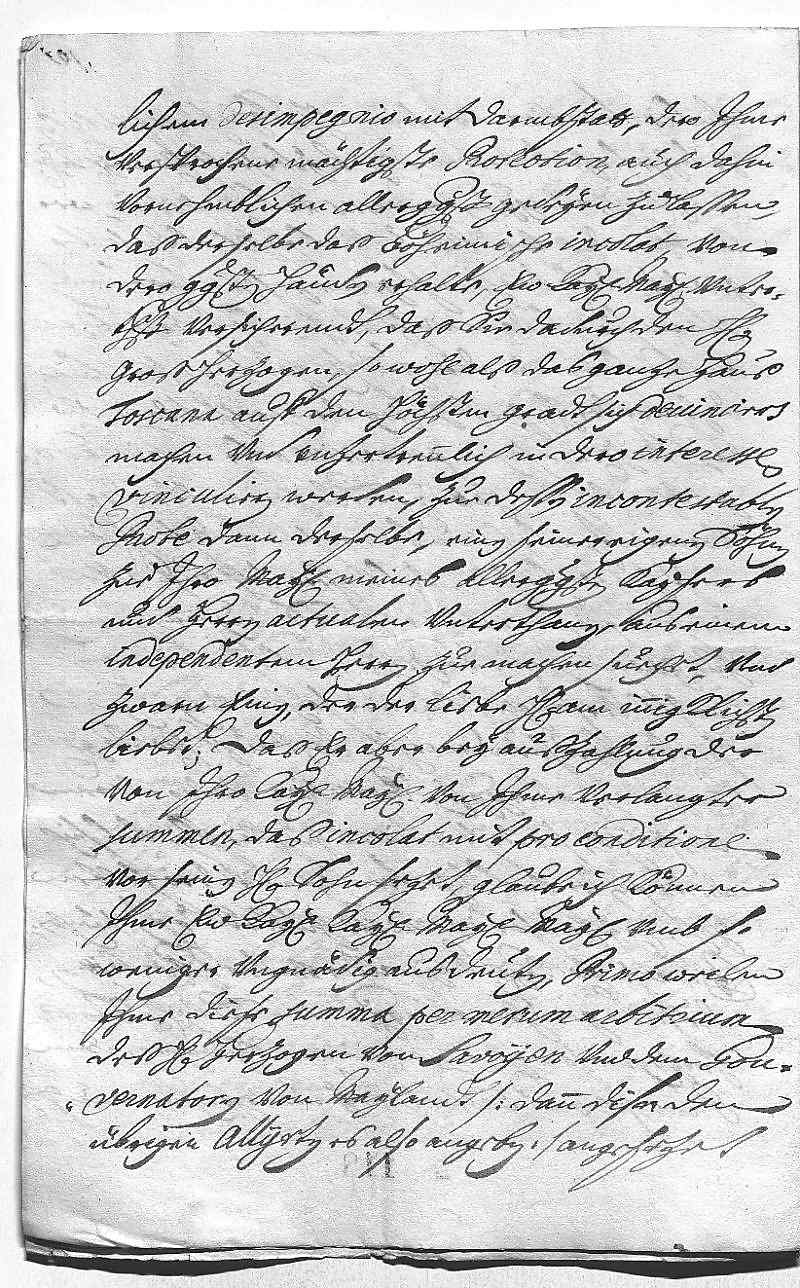 lichem desimpegnio mit Darmbstatt, dero Ihme
Versprochene mächtigste Protection, auch dahin
Vornehmblichen allerggst gedeyen zu lassen,
daß derselbe das Böheimische incolat Von
dero ggsten Handen erhalte, Ew Kayl Mayl Unter-
thgst Versicherend, daß Sie dadurch den H
Gross Herzogen, so wohl als das ganze Haus
Toscana auf den höchsten grad sich devincirt
machen Und unzertrennlich in dero interesse
vinculirt werden, zur dessen incontestablen
Probe dann derselbe, einen seiner eigenen Söhne
zue Ihro Mayl meines allerggsten Kaysers
und Herrn actualen Unterthanen, aus einem
independentem Herrn zue machen sucht, Und
zwarn Einen, den der liebe H am innigklichsten
liebet; Daß Er aber bey auszahlung der
Von Ihro Kayl Mayl Von Ihme Verlangten
summen, das incolat mit pro conditione
Vor seinen H Sohn setzet, glaube ich können
Ihme Ew Kayl Kayl Mayl Mayl Umb so
weniger Ungnädig ausdeuten, Primo weilen
Ihme diese summa per merum arbitrium
deß H Herzogen Von Savoyen Und dem Gou-
vernatorn Von Mayland /: dann diese den
übrigen Allyrten es also angeben :/ angesetzet